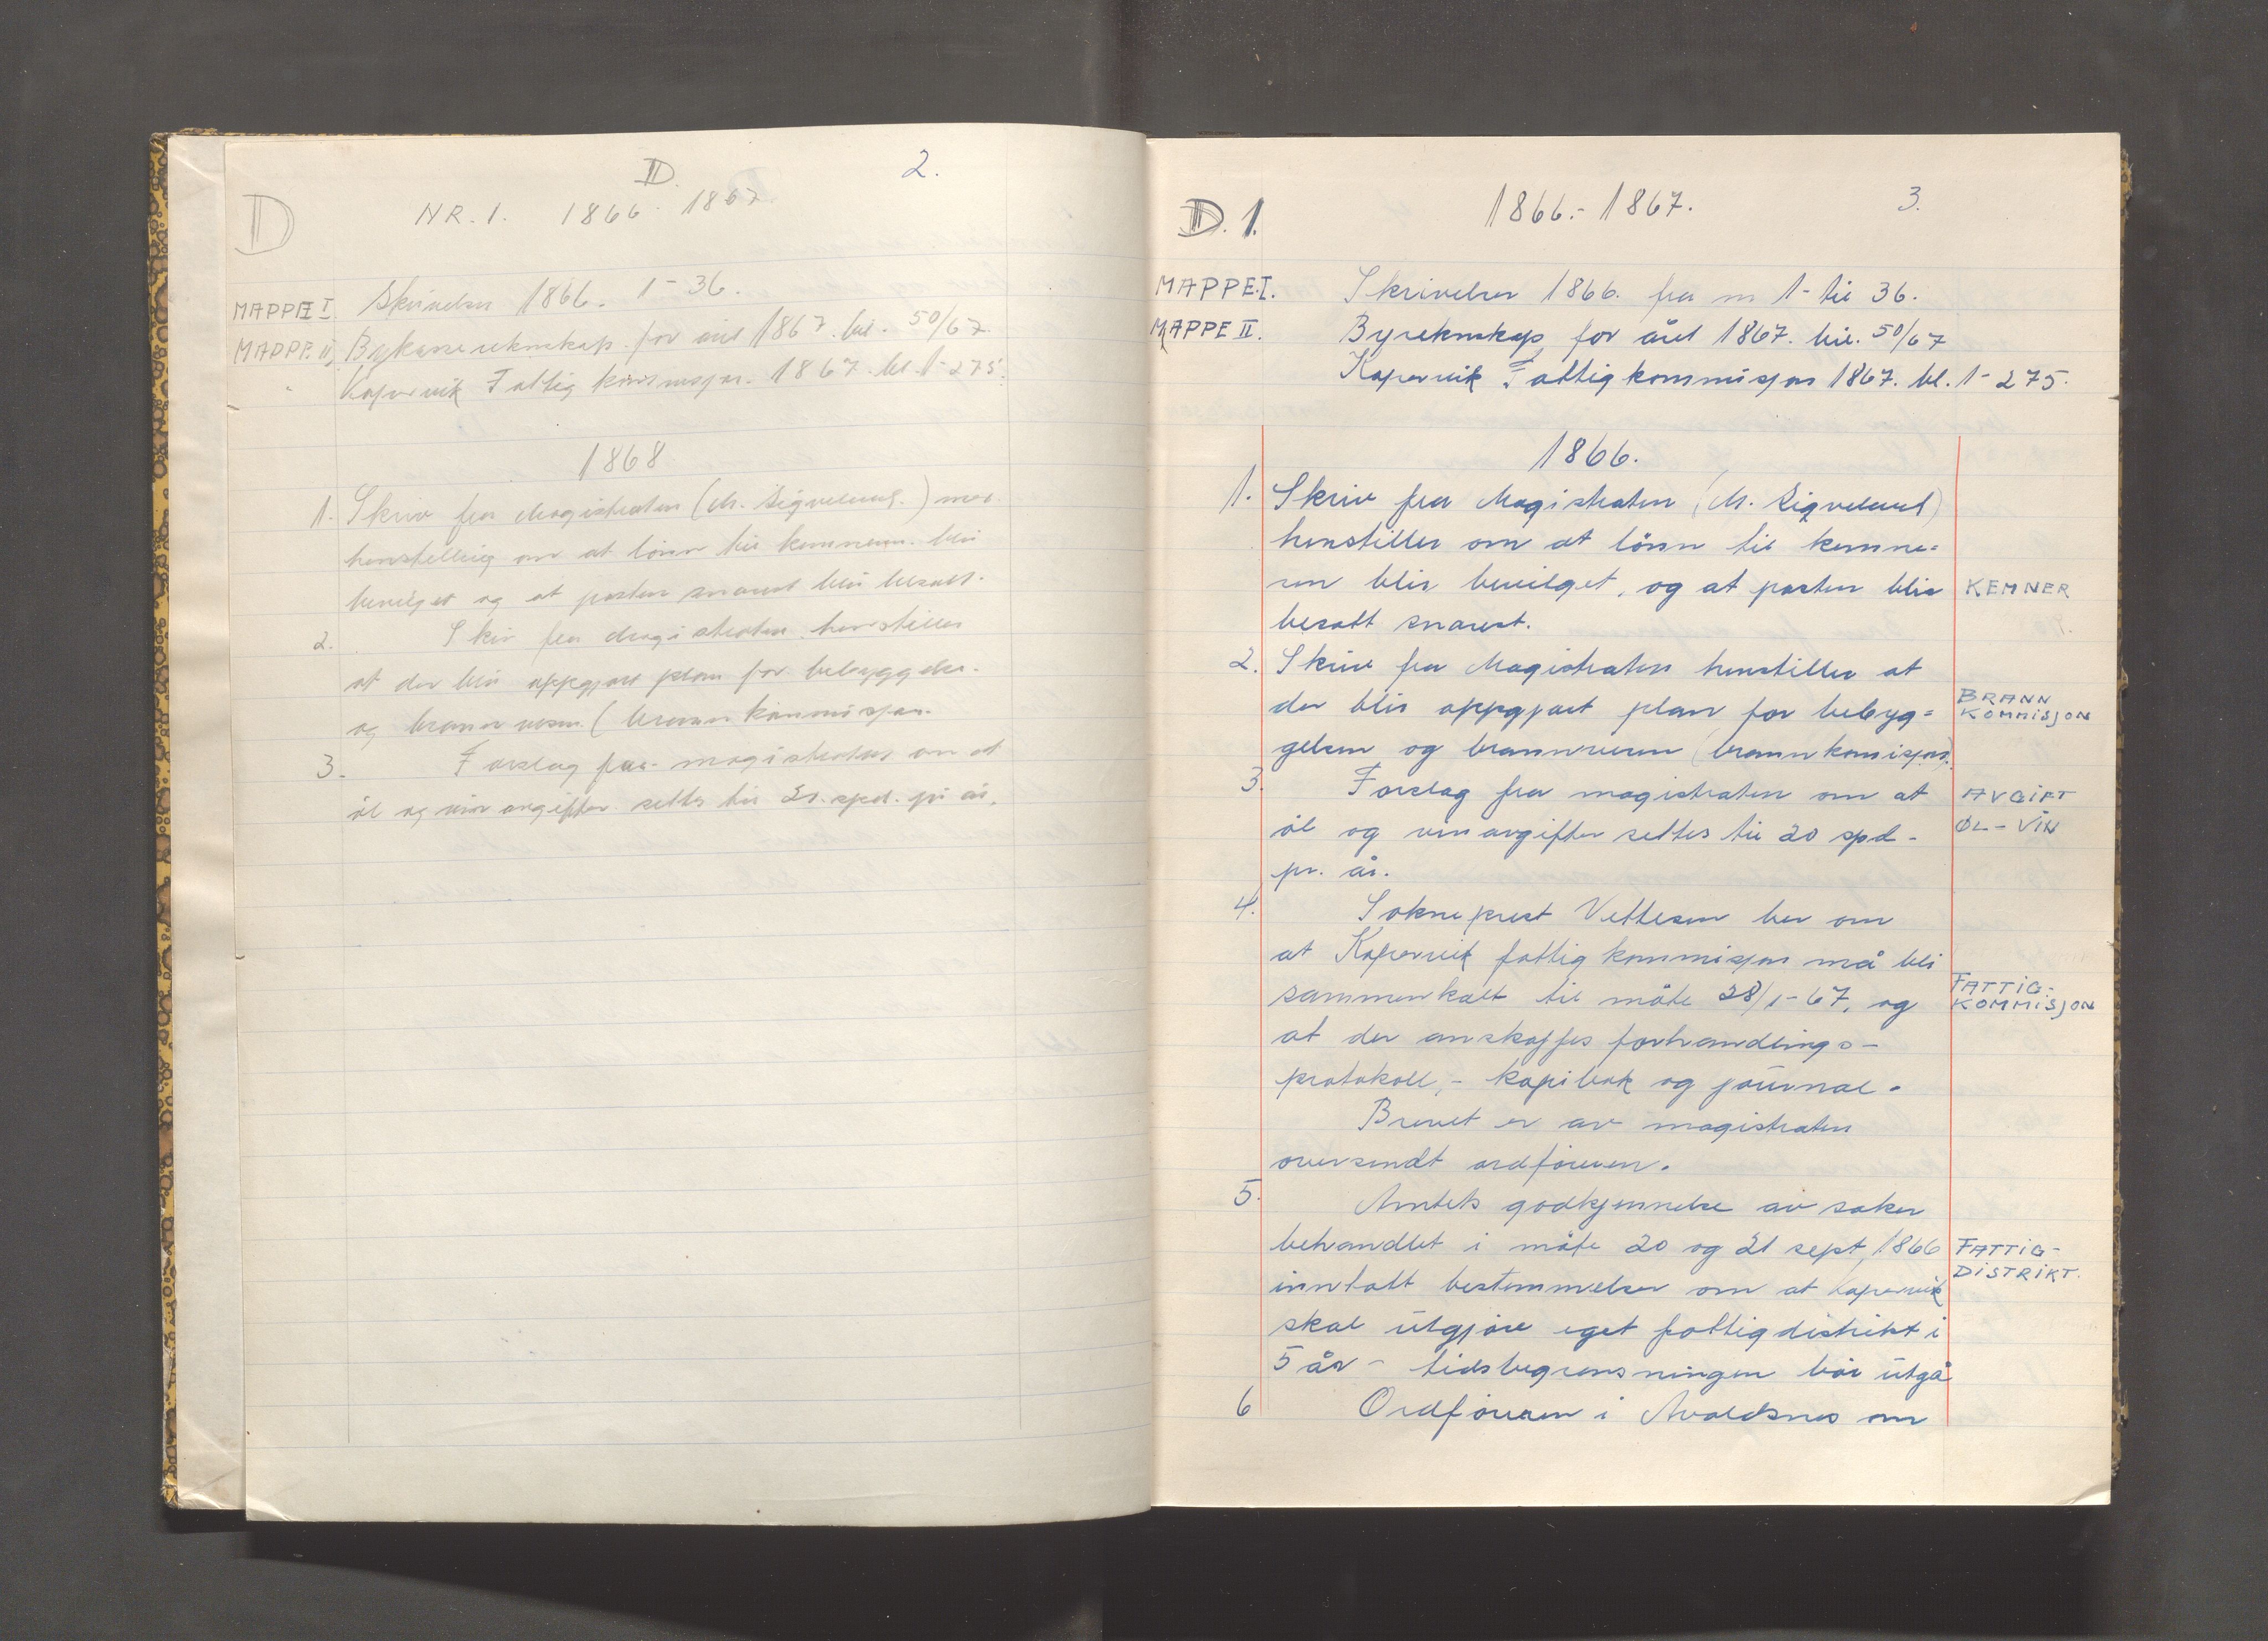 D. 2.
D
NR. 1. 1866. 1867.
MAPPE I. Skrivelser 1866. 1-36.
MAPPE II. Bykasserekneskap for året 1867. bil. 50/67
" Kopervik Fattigkommisjon. 1867. bl. 1-275.
1868
1. Skriv fra Magistraten (M. Sigvelund.) med
henstelling om at lönn til kemneren. blir
bevilget og at posten snarest blir besatt.
2. Skriv fra Magistraten. henstiller
at der blir oppgjort plan for bebyggelse.
og brannvesen. (brannkommisjon.
3. Forslag fra magistraten om at
öl og vin avgifter settes til 20. spd. pr år.
D. 1. 1866.-1867. 3.
MAPPE I. Skrivelser 1866. fra nr 1- til 36.
MAPPE II. Byrekneskap for året 1867. bil. 50/67
Kopervik Fattigkommisjon 1867. bl. 1-275.
1866.
1. Skriv fra Magistraten (M. Sigvelund)
henstiller om at lönn til kemne=
ren blir bevilget, og at posten blir KEMNER
besatt snarest.
2. Skriv fra Magistraten henstiller at
der blir oppgjort plan for bebyg= BRANN KOMMISJON
gelsen og brannvesen (brannkomisjon).
3. Forslag fra magistraten om at AVGIFT
öl og vinavgifter settes til 20 spd- ØL-VIN
pr. år.
4. Sokneprest Vettesen ber om
at Kopervik fattigkommisjon må bli
sammenkalt til möte 28/1-67, og FATTIG-KOMMISJON
at der anskaffes forhandlings-
protokoll,- kopibok og journal.
Brevet er av magistraten
oversendt ordföreren.
5. Amtets godkjennelse av saker
behandlet i möte 20 og 21 sept, 1866 FATTIG-
inntatt bestemmelser om at Kopervik DISTRIKT.
skal utgjöre eget fattigdistrikt i
5 år - tidsbegrensningen bör utgå
6 Ordföreren i Avaldsnes om